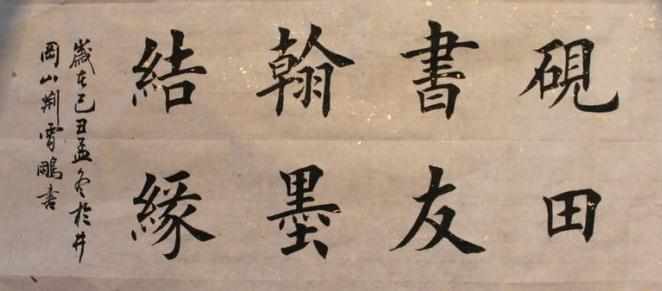 硯田
書友
翰墨
結緣
歲在己丑孟冬於井
岡山荆雪鵬書